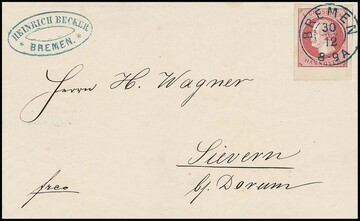 HEINRICH BECKER
* BREMEN. *
BREMEN
30
12
8-9A
HANNOVER
Herrn H. Wagner
Sievern
b/. Dorum
frco